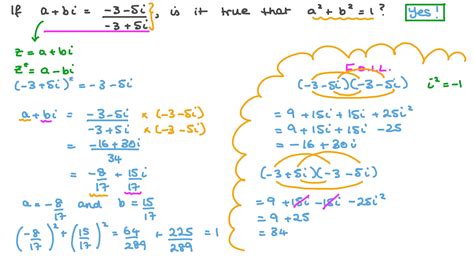 If a + bi = (-3 - 5i)/(-3 + 5i), is it true that a² + b² = 1? Yes!
z = a + bi
z* = a - bi
(-3 + 5i)* = -3 - 5i
a + bi = (-3 - 5i)/(-3 + 5i) × (-3 - 5i)/× (-3 - 5i)
= (-16 + 30i)/34
= -8/17 + 15i/17
a = -8/17 and b = 15/17
(-8/17)² + (15/17)² = 64/289 + 225/289 = 1
F.O.I.L.
(-3 - 5i)(-3 - 5i) i² = -1
= 9 + 15i + 15i + 25i²
= 9 + 15i + 15i - 25
= -16 + 30i
(-3 + 5i)(-3 - 5i)
= 9 + 15i - 15i - 25i²
= 9 + 25
= 34